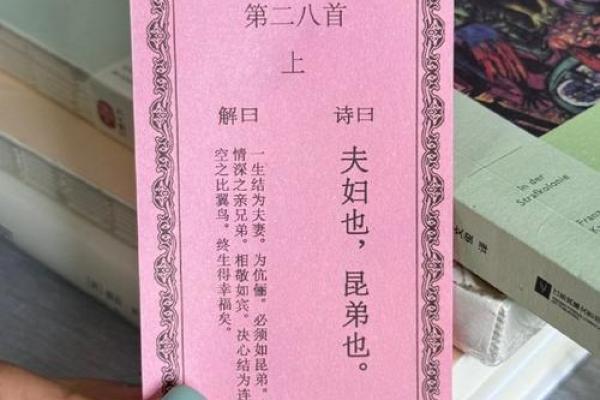 第二八首
上
诗曰
夫妇也，昆弟也。
解曰
一生结为夫妻。为伉俪。必须如昆弟。
情深之亲兄弟。相敬如宾。决心结为连
空之比翼鸟。终生得幸福矣。
In der
Strafkolonie